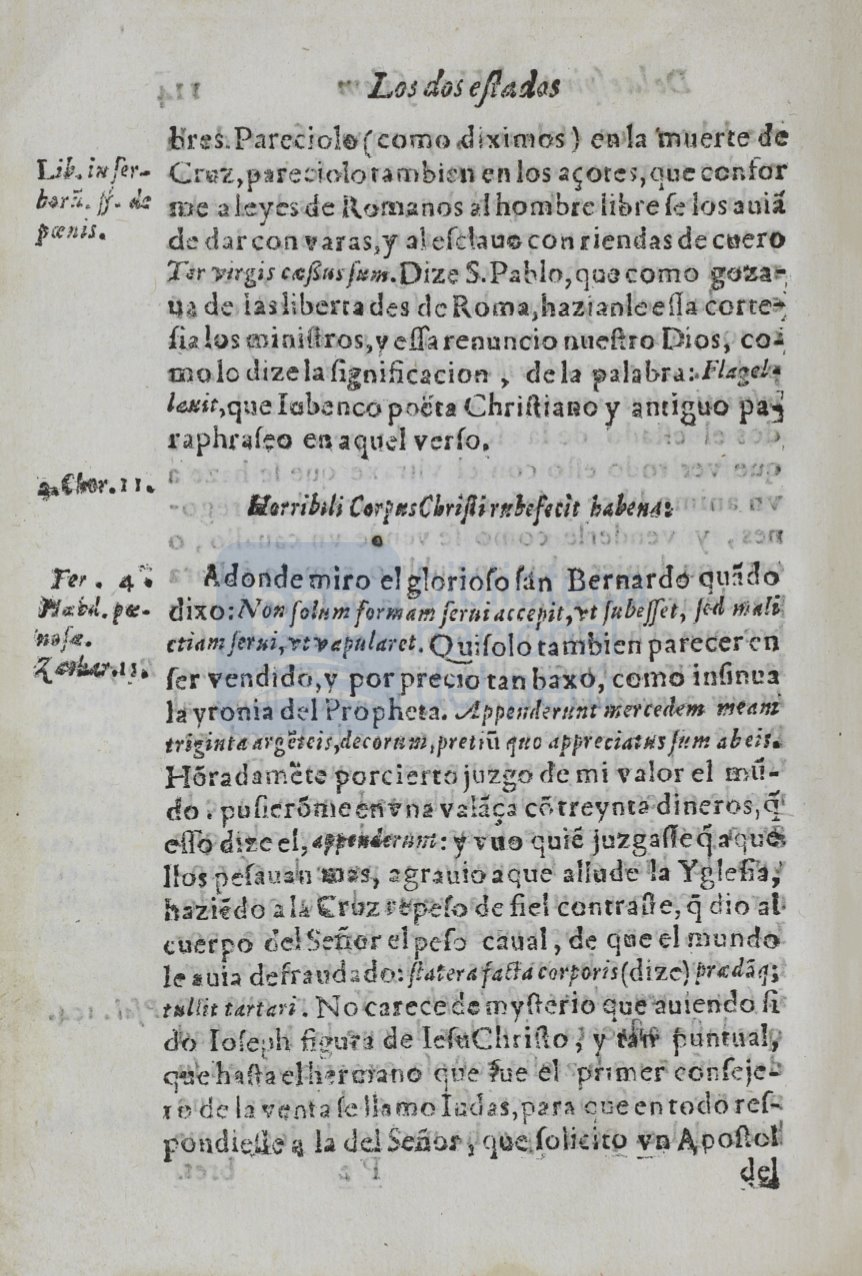 Los dos eſtados
bres. Pareciolo (como diximos) en la muerte de
Cruz, pareciolo tambien en los açotes, que confor
me a leyes de Romanos al hombre libre ſe los auiã
de dar con varas, y al eſclauo con riendas de cuero
Ter virgis cæßus ſum. Dize S. Pablo, que como goza-
ua de las liberta des de Roma, hazianle eſſa corte-
ſia los miniſtros, y eſſa renuncio nueſtro Dios, co-
mo lo dize la ſignificacion, de la palabra: Flagel-
lauit, que Iubenco poëta Chriſtiano y antiguo pa-
raphraſeo en aquel verſo.
Horribili Corpus Chriſti rubefecit habena:
Adonde miro el glorioſo ſan Bernardo quãdo
dixo: Non ſolum formam ſerui accepit, vt ſubeſſet, ſed mali
etiam ſerui, vt vapularet. Quiſolo tambien parecer en
ſer vendido, y por precio tan baxo, como inſinua
la yronia del Propheta. Appenderunt mercedem meam
triginta argẽteis, decorum, pretiũ quo appreciatus ſum ab eis.
Hõradamẽte por cierto juzgo de mi valor el mũ-
do. puſierõme en vna valãça cõ treynta dineros, q̃
eſſo dize el, appenderunt: y vuo quiẽ juzgaſſe q̃ aque
llos peſauan mas, agrauio a que allude la Ygleſia,
haziẽdo a la Cruz repeſo de fiel contraſte, q̃ dio al
cuerpo del Señor el peſo caual, de que el mundo
le auia defraudado: ſtatera facta corporis (dize) prædãq;
tullit tartari. No carece de myſterio que auiendo ſi
do Ioſeph figura de IeſuChriſto, y tan puntual,
que haſta el hermano que fue el primer conſeje-
ro de la venta ſe llamo Iudas, para que en todo reſ-
pondieſſe a la del Señor, que ſolicito vn Apoſtol
del
Lib. in ſer-
borũ. ff. de
pœnis.
2. Chor. 11.
Fer. 4.
Hæbd. pœ-
noſæ.
Zachar. 11.